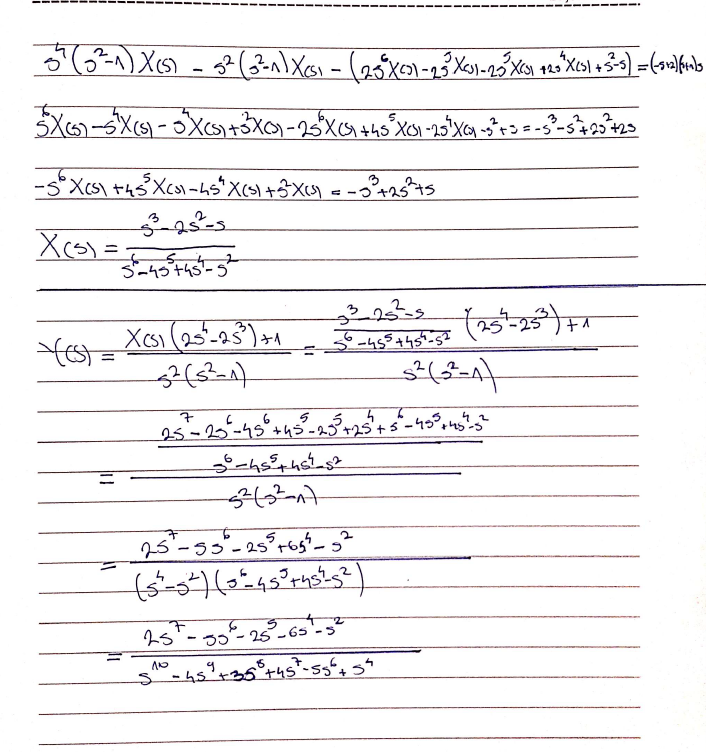 s⁴(s²-1)X(s) - s²(s²-1)X(s) - (2s⁶X(s) - 2s⁵X(s) - 2s⁵X(s) + 2s⁴X(s) + s²-s) = (-s+2)(s+1)s
s⁶X(s) - s⁴X(s) - s⁴X(s) + s²X(s) - 2s⁶X(s) + 4s⁵X(s) - 2s⁴X(s) - s² + s = -s³ - s² + 2s² + 2s
-s⁶X(s) + 4s⁵X(s) - 4s⁴X(s) + s²X(s) = -s³ + 2s² + s
X(s) = (s³ - 2s² - s) / (s⁶ - 4s⁵ + 4s⁴ - s²)
Y(s) = (X(s)(2s⁴ - 2s³) + 1) / (s²(s²-1)) = ((s³ - 2s² - s) / (s⁶ - 4s⁵ + 4s⁴ - s²) (2s⁴ - 2s³) + 1) / (s²(s²-1))
= ((2s⁷ - 2s⁶ - 4s⁶ + 4s⁵ - 2s⁵ + 2s⁴ + s⁶ - 4s⁵ + 4s⁴ - s²) / (s⁶ - 4s⁵ + 4s⁴ - s²)) / (s²(s²-1))
= (2s⁷ - 5s⁶ - 2s⁵ + 6s⁴ - s²) / ((s⁴ - s²)(s⁶ - 4s⁵ + 4s⁴ - s²))
= (2s⁷ - 5s⁶ - 2s⁵ - 6s⁴ - s²) / (s¹⁰ - 4s⁹ + 3s⁸ + 4s⁷ - 5s⁶ + s⁴)